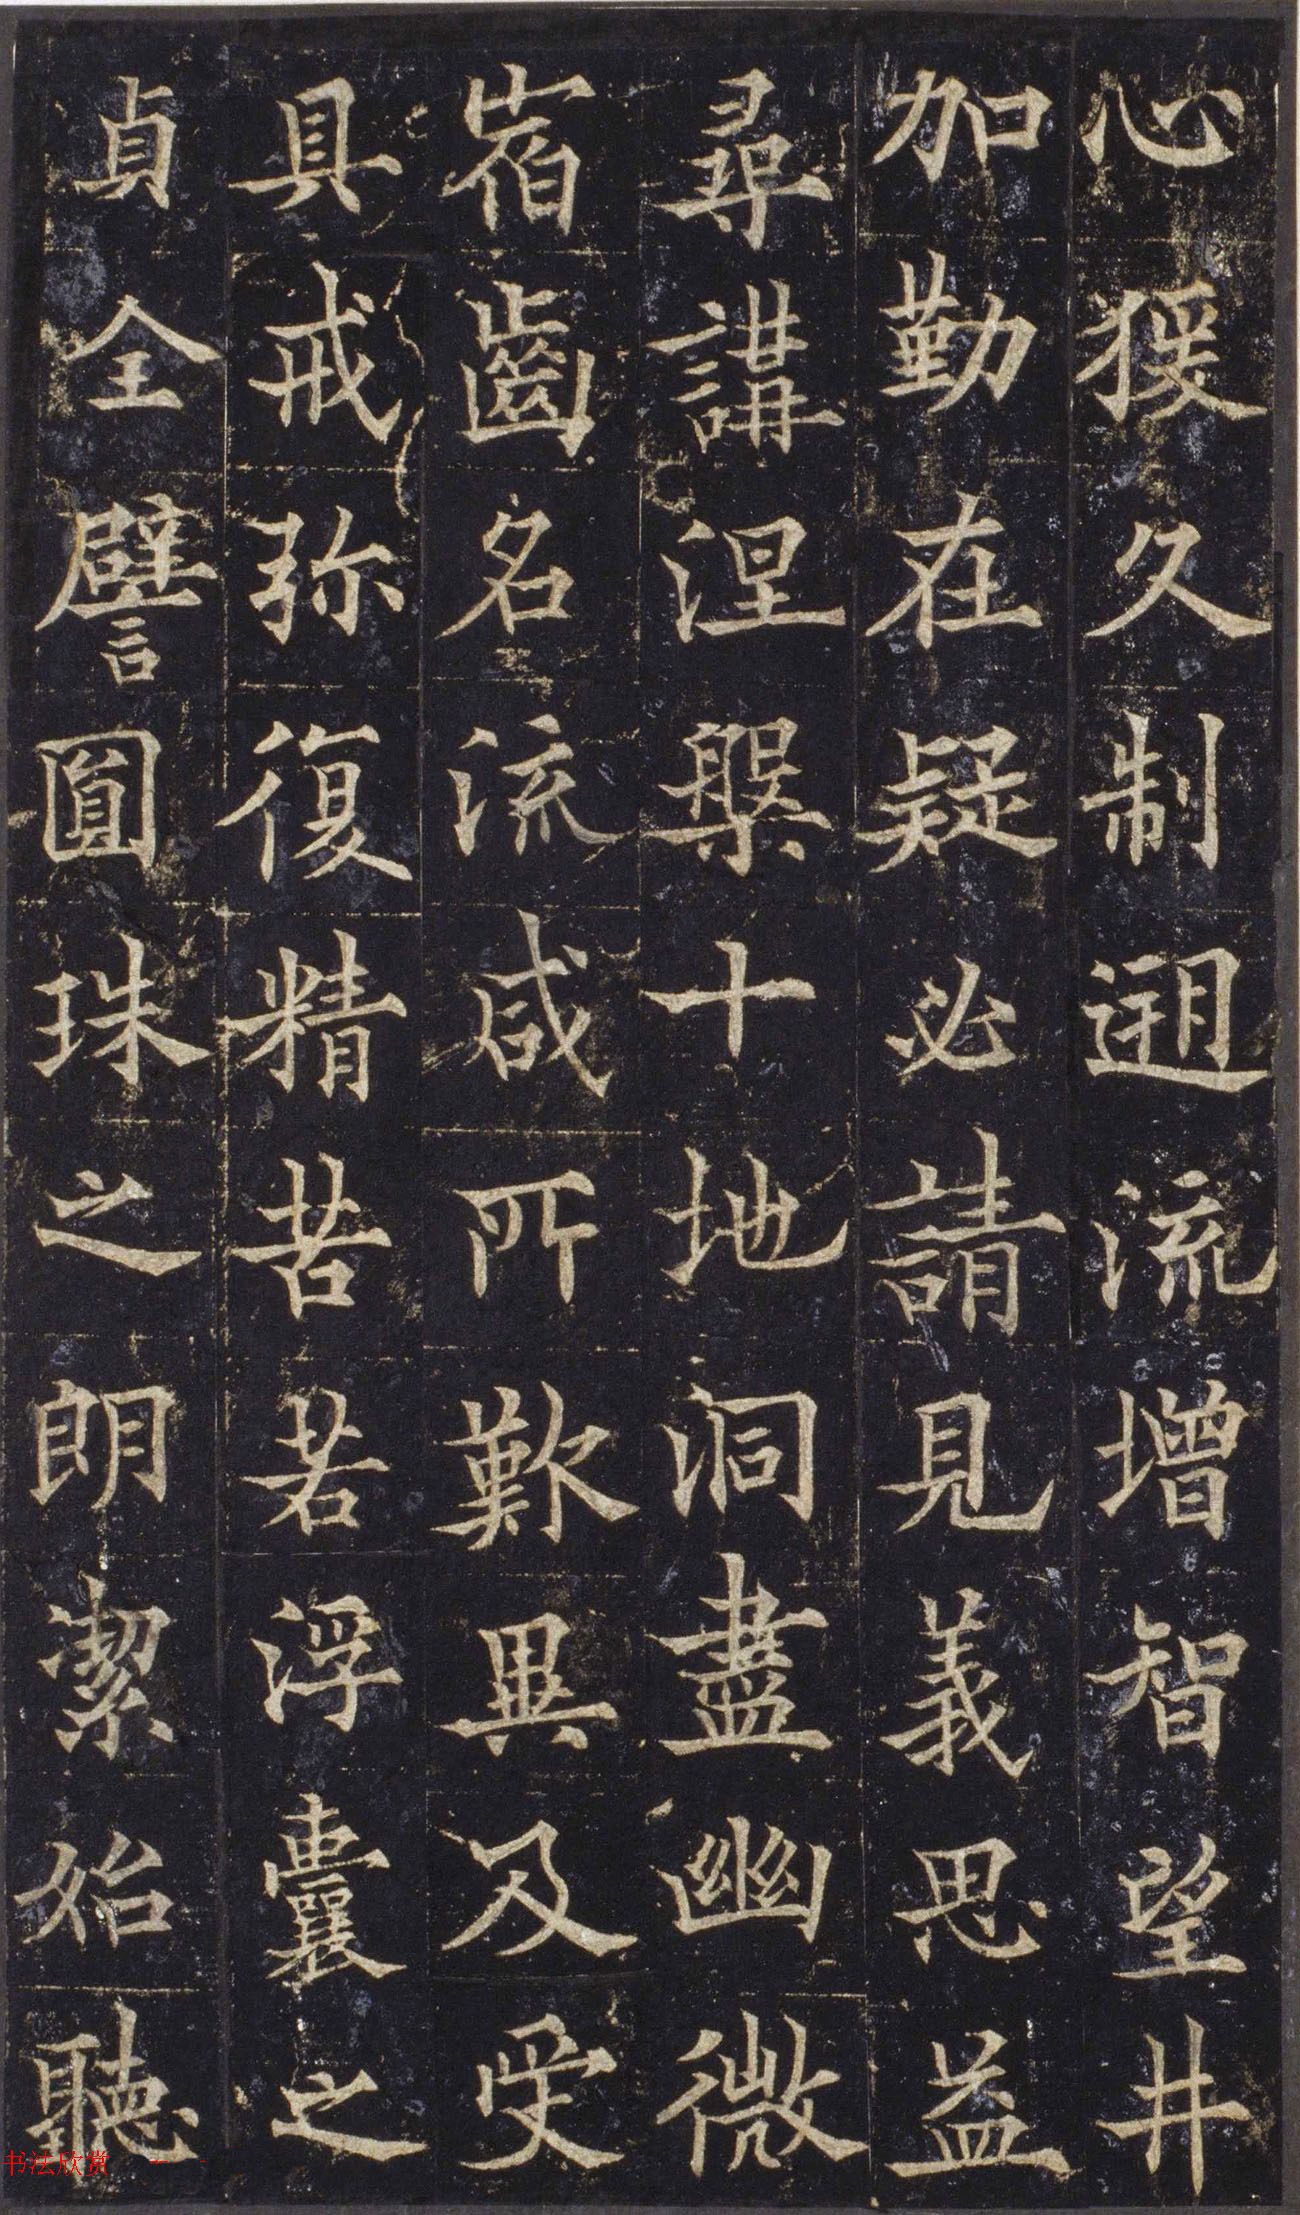 心猨久制遡流增智望井
加勤在疑必請見義思益
尋講涅槃十地洞盡幽微
宿齒名流咸所歎異及受
具戒弥復精苦若浮囊之
貞全譬圓珠之朗潔始聽
书法欣赏